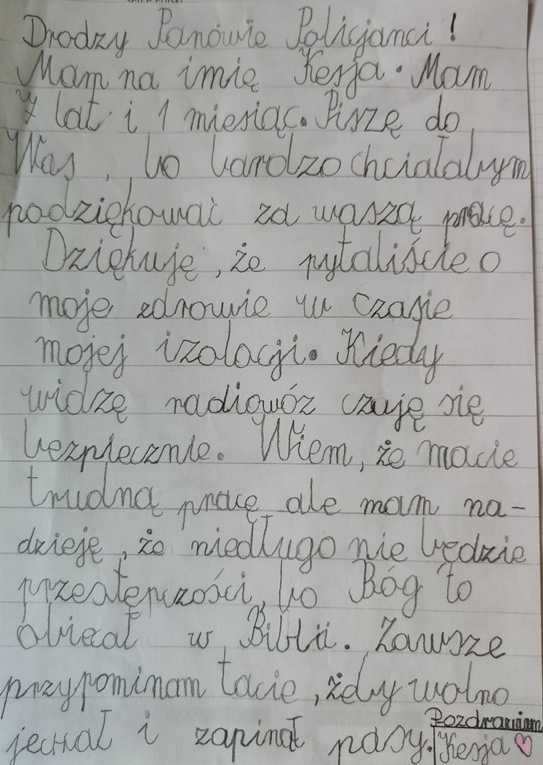 Drodzy Panowie Policjanci!
Mam na imię Kesja. Mam
7 lat i 1 miesiąc. Piszę do
Was, bo bardzo chciałabym
podziękować za waszą pracę.
Dziękuję, że pytaliście o
moje zdrowie w czasie
mojej izolacji. Kiedy
widzę radiowóz czuję się
bezpiecznie. Wiem, że macie
trudną pracę ale mam na-
dzieję, że niedługo nie będzie
przestępczości, bo Bóg to
obiecał w Biblii. Zawsze
przypominam tacie, żdy wolno
jechał i zapinał pasy. Pozdrawiam
Kesja